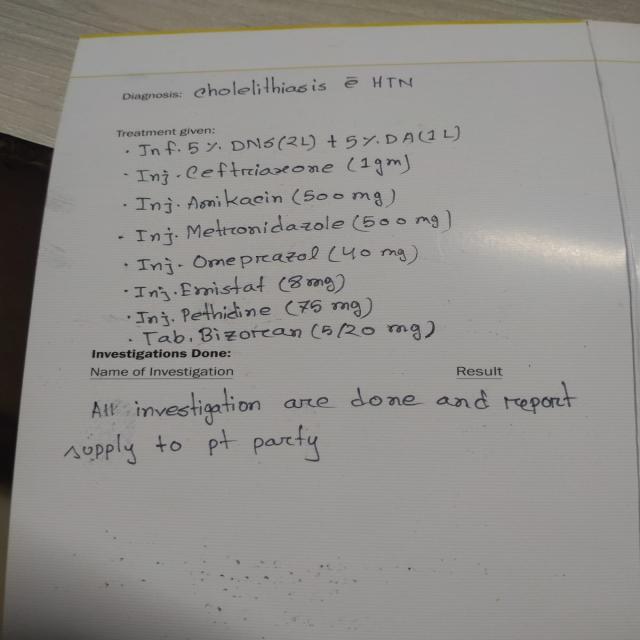 Diagnosis: Cholelithiasis c̄ HTN
Treatment given:
• Inf. 5%. DNS(2L) + 5%. DA(1L)
• Inj. Ceftriaxone (1gm)
• Inj. Amikacin (500 mg)
• Inj. Metronidazole (500 mg)
• Inj. Omeprazol (40 mg)
• Inj. Emistat (8mg)
• Inj. Pethidine (75 mg)
• Tab. Bizorcan (5/20 mg)
Investigations Done:
Name of Investigation Result
All investigation are done and report
supply to pt party